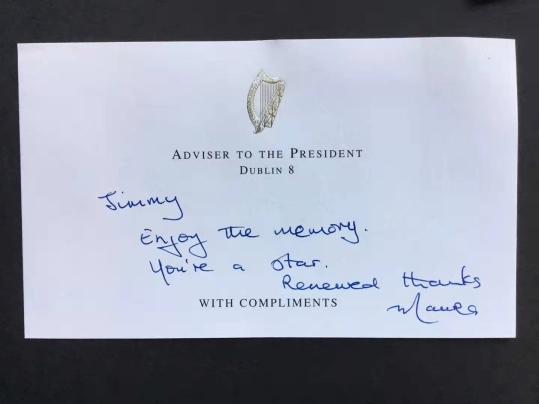 ADVISER TO THE PRESIDENT
DUBLIN 8
Jimmy
Enjoy the memory.
You're a star.
Renewed thanks
WITH COMPLIMENTS
Maura